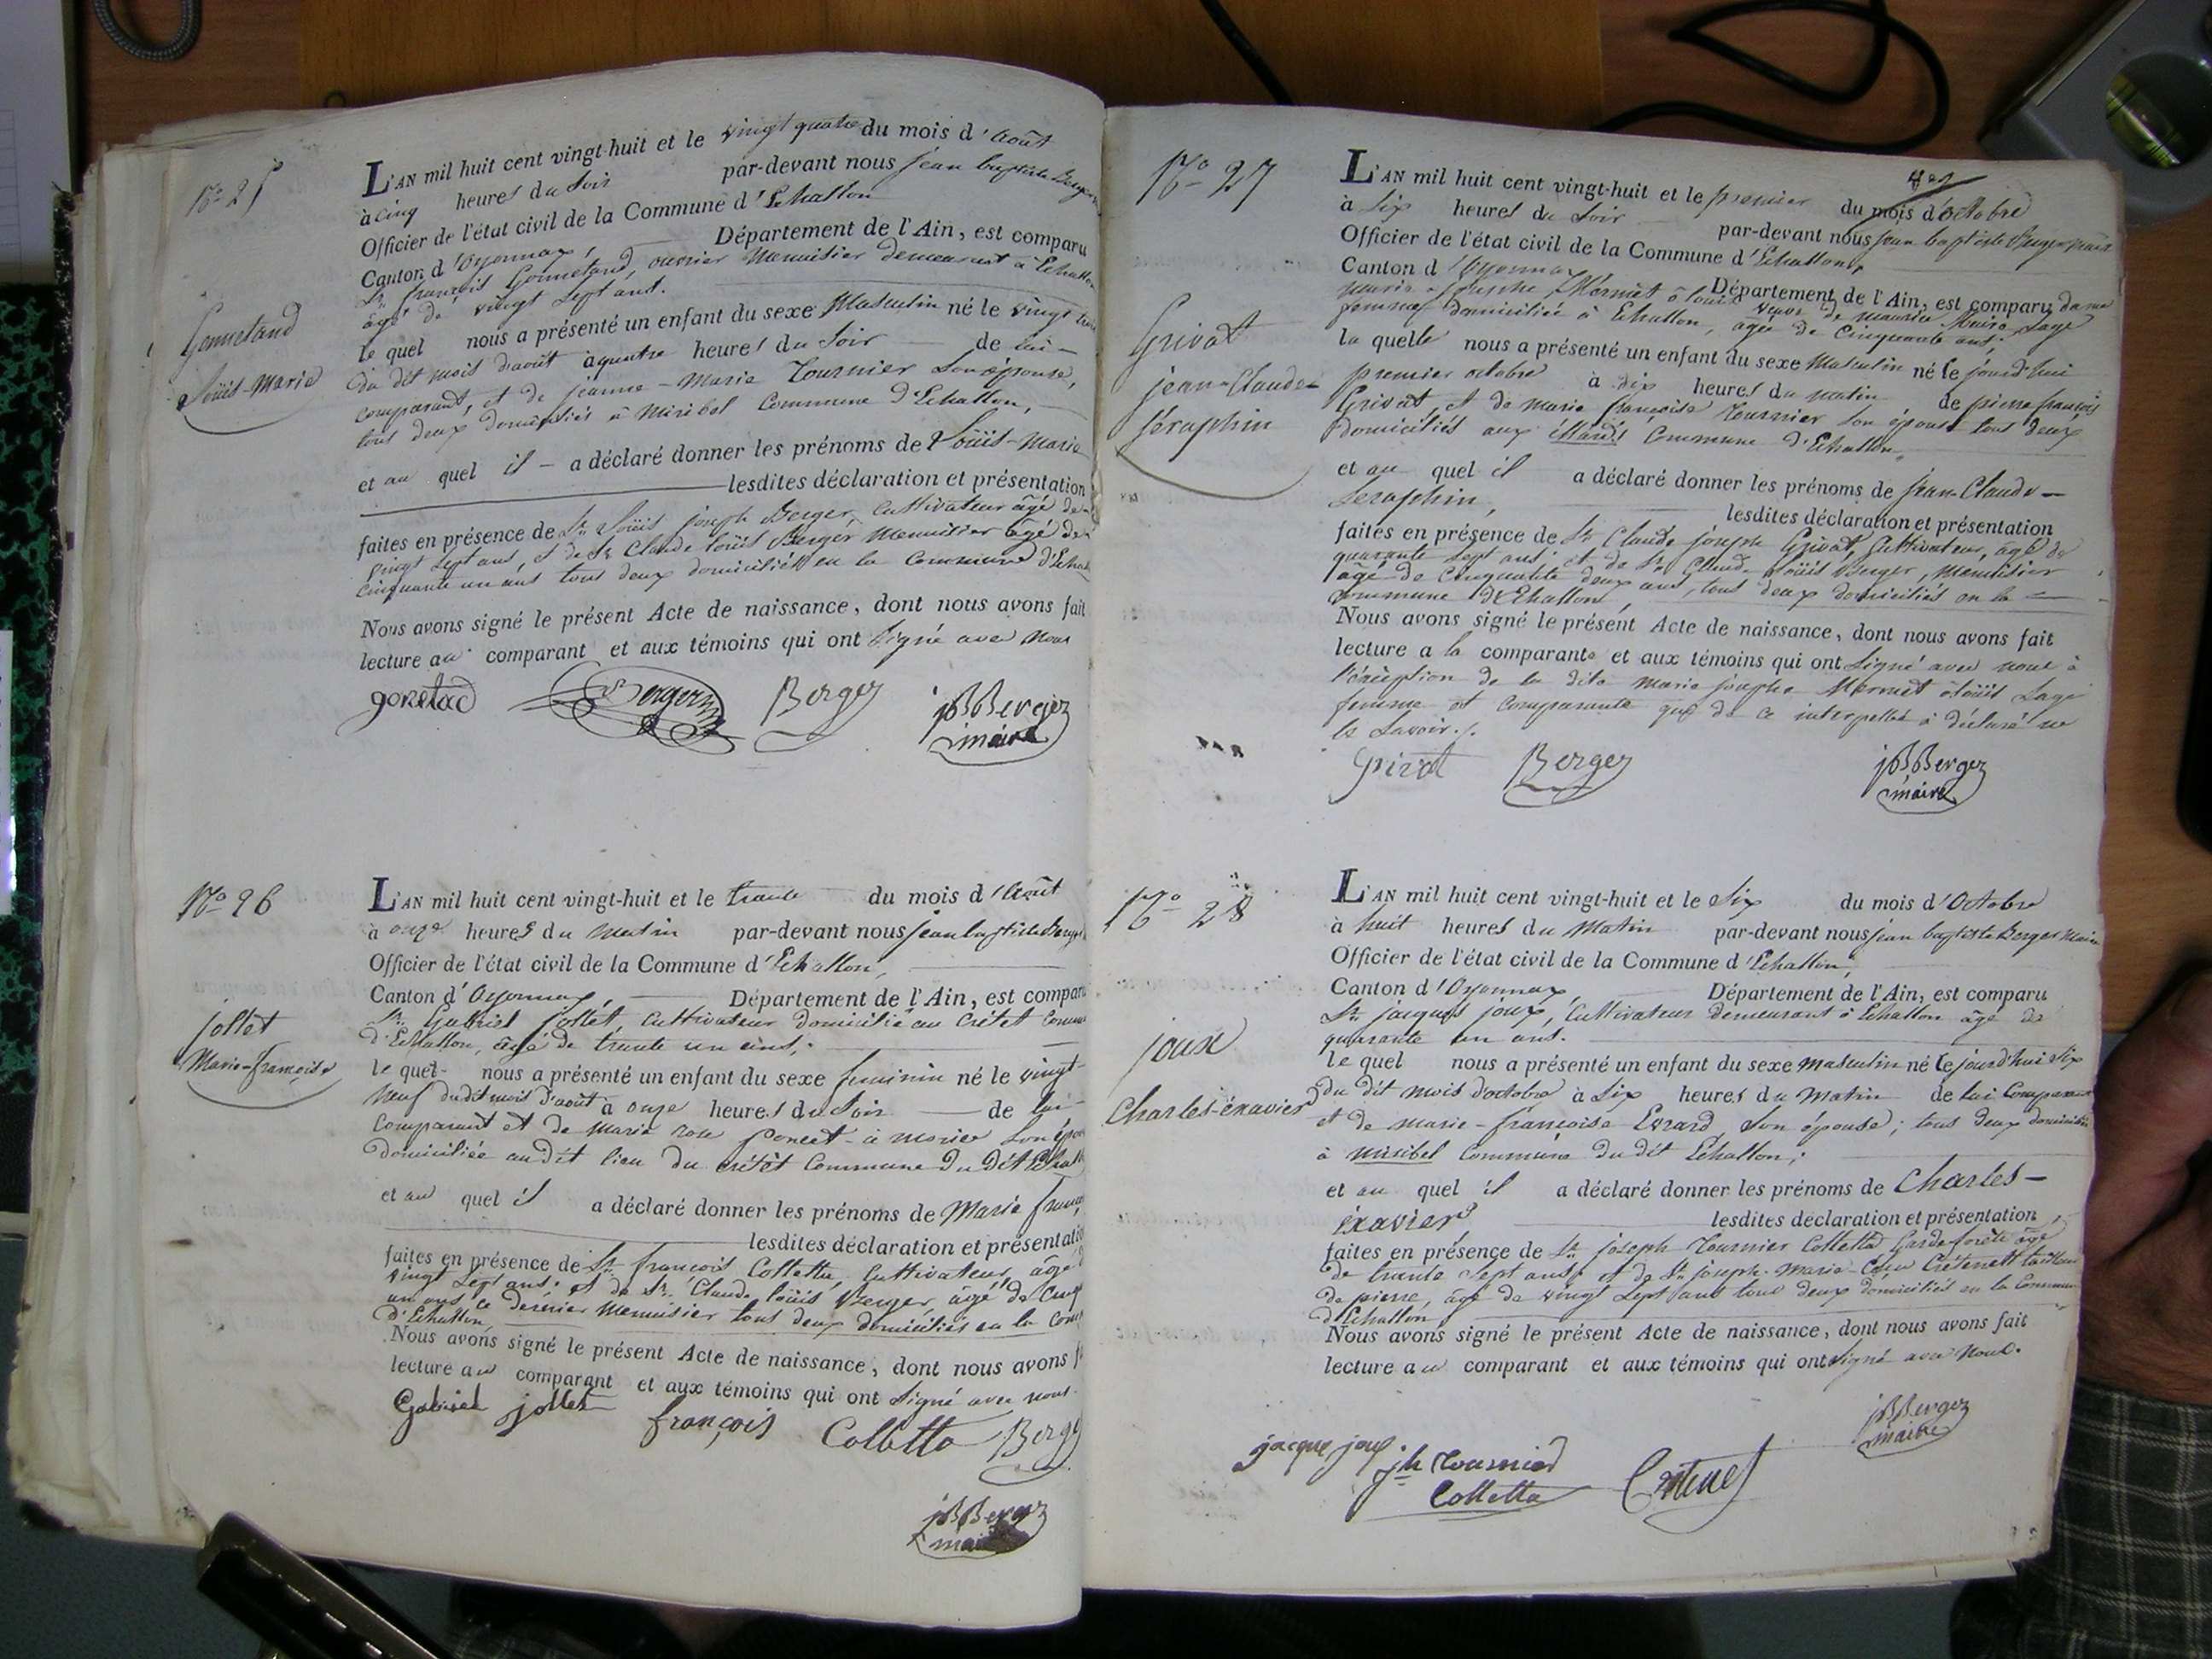 No 25
Gonnetand
Loüis-Marie
L'AN mil huit cent vingt-huit et le vingt quatre du mois d'Août
à cinq heures du soir par-devant nous jean baptiste Berger
Officier de l'état civil de la Commune d'Echallon
Canton d'Oyonnax, Département de l'Ain, est comparu
Sr. françois Gonnetand, ouvrier Menuisier demeurant à Echallon
âgé de vingt sept ans.
le quel nous a présenté un enfant du sexe Masculin né le vingt
du dit mois d'août à quatre heures du Soir de lui-
comparant, et de jeanne-Marie Tournier son épouse,
tous deux domiciliés à Miribel Commune d'Echallon,
et au quel il - a déclaré donner les prénoms de Loüis-Marie
lesdites déclaration et présentation
faites en présence de Sr. Loüis joseph Berger, Cultivateur âgé de
vingt sept ans, et de Sr. Claude loüis Berger Menuisier âgé de
cinquante un ans tous deux domiciliés en la Commune d'Echall
Nous avons signé le présent Acte de naissance, dont nous avons fait
lecture au comparant et aux témoins qui ont signé avec nous
gonetad Berger Berger jBBerger
maire
No 26
jollet
Marie-françoise
L'AN mil huit cent vingt-huit et le trente du mois d'Août
à onze heures du matin par-devant nous jean baptiste Berger
Officier de l'état civil de la Commune d'Echallon,
Canton d'Oyonnax, Département de l'Ain, est compar
Sr. Gabriel jollet, cultivateur domicilié au Crétet Commu
d'Echallon, âgé de trente un ans,
le quel- nous a présenté un enfant du sexe feminin né le vingt-
neuf dudit mois d'août à onze heures du Soir de lui-
comparant et de marie rose poncet-à-morice son épou
domiciliée au dit lieu du crétêt Commune du dit Echall
et au quel il a déclaré donner les prénoms de Marie franç
lesdites déclaration et présentatio
faites en présence de Sr. françois Collettaz, Cultivateur, âgé
vingt sept ans, et de Sr. Claude loüis Berger, âgé de cinq
un ans ce dernier Menuisier tous deux domiciliés en la com
d'Echallon,
Nous avons signé le présent Acte de naissance, dont nous avons f
lecture au comparant et aux témoins qui ont signé avec nous.
Gabriel jollet françois Colletta Berge
jBBerger
maire
No 27
Grivat
jean-Claude-
séraphin
L'AN mil huit cent vingt-huit et le premier du mois d'octobre
à Six heures du Soir par-devant nous jean baptiste Berger maire
Officier de l'état civil de la Commune d'Echallon,
Canton d'Oyonnax Département de l'Ain, est comparu dame
marie-josephe Mermet à louis veuve de maurice Sage
femme domiciliée à Echallon, âgée de Cinquante ans,
la quelle nous a présenté un enfant du sexe Masculin né le jourd'hui
premier octobre à dix heures du matin de pierre françois
Grivat, et de marie françoise Tournier son épouse tous deux
domiciliés aux Mards Commune d'Echallon,
et au quel il a déclaré donner les prénoms de jean-Claude-
Seraphin, lesdites déclaration et présentation
faites en présence de Sr. Claude joseph Grivat, Cultivateur, âgé de
quarante sept ans et de Sr. Claude Loüis Berger, menuisier
âgé de cinquante deux ans, tous deux domiciliés en la
commune d'Echallon,
Nous avons signé le présent Acte de naissance, dont nous avons fait
lecture a la comparante et aux témoins qui ont signé avec nous à
l'éxception de la dite marie josephe Mermet à loüis Sage
femme et comparante qui de ce interpellée à déclaré ne
le Savoir./.
Grivat Berger jBBerger
maire
No 28
joux
Charles-éxavier
L'AN mil huit cent vingt-huit et le Six du mois d'Octobre
à huit heures du Matin par-devant nous jean baptiste Berger Maire
Officier de l'état civil de la Commune d'Echallon,
Canton d'Oyonnax, Département de l'Ain, est comparu
Sr. jacques joux, Cultivateur demeurant à Echallon âgé de
quarante un ans.
le quel nous a présenté un enfant du sexe masculin né le jourd'hui Six
du dit mois d'octobre à Six heures du matin de lui Comparant
et de marie-françoise Evrard, Son épouse; tous deux domiciliés
à miribel Commune du dit Echallon;
et au quel il a déclaré donner les prénoms de Charles-
éxavier lesdites déclaration et présentation,
faites en présence de Sr. joseph Tournier Colletta Garde forêts âgé
de trente sept ans, et de Sr. joseph-marie Crétenet tailleur
de pierre, âgé de vingt sept ans tous deux domiciliés en la Commune
d'Echallon,
Nous avons signé le présent Acte de naissance, dont nous avons fait
lecture au comparant et aux témoins qui ont signé avec nous.
jBBerger
maire
jacque joux jh Tournier
Colletta Crétenet